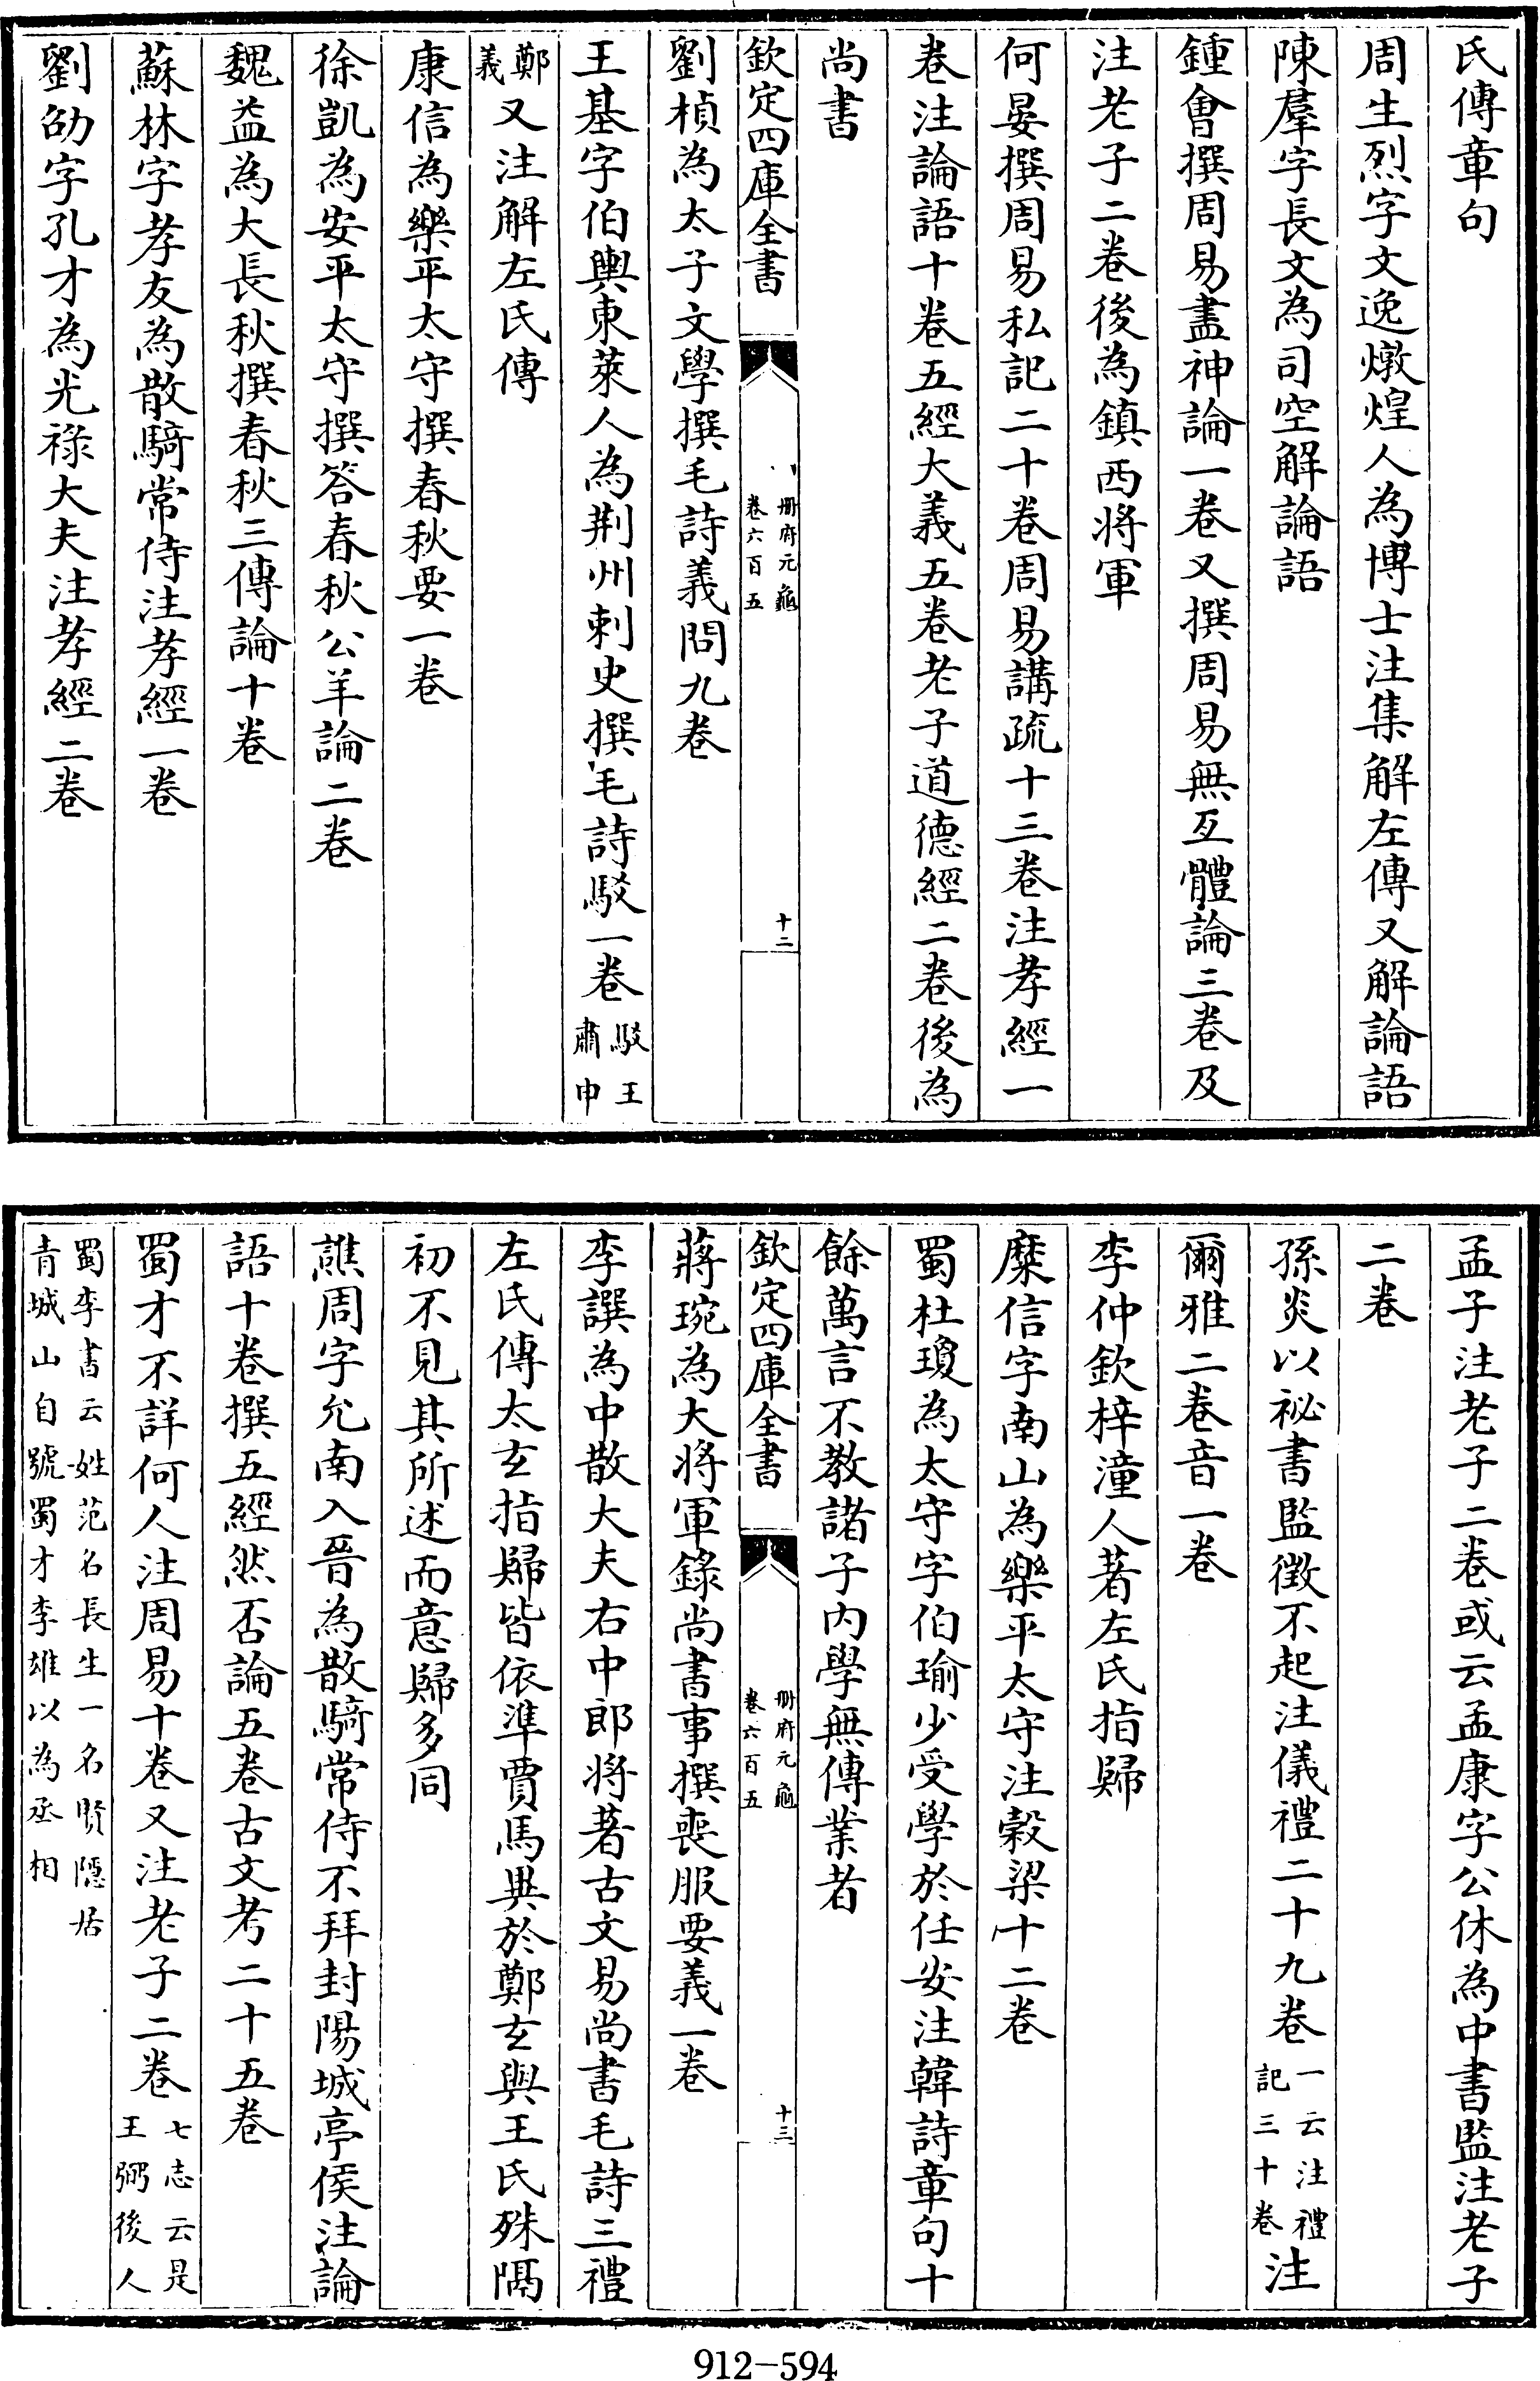 氏傳章句
周生烈字文逸燉煌人為博士注集解左傳又解論語
陳羣字長文為司空解論語
鍾會撰周易盡神論一卷又撰周易無互體論三卷及
注老子二卷後為鎮西將軍
何晏撰周易私記二十卷周易講疏十三卷注孝經一
卷注論語十卷五經大義五卷老子道德經二卷後為
尚書
欽定四庫全書
冊府元龜
卷六百五
十二
劉楨為太子文學撰毛詩義問九卷
王基字伯輿東萊人為荆州刺史撰毛詩駁一卷駁王肅申
鄭義又注解左氏傳
康信為樂平太守撰春秋要一卷
徐凱為安平太守撰答春秋公羊論二卷
魏益為大長秋撰春秋三傳論十卷
蘇林字孝友為散騎常侍注孝經一卷
劉劭字孔才為光祿大夫注孝經二卷
孟子注老子二卷或云孟康字公休為中書監注老子
二卷
孫炎以祕書監徵不起注儀禮二十九卷一云注禮記三十卷注
爾雅二卷音一卷
李仲欽梓潼人著左氏指歸
糜信字南山為樂平太守注穀梁十二卷
蜀杜瓊為太守字伯瑜少受學於任安注韓詩章句十
餘萬言不教諸子內學無傳業者
欽定四庫全書
冊府元龜
卷六百五
十三
蔣琬為大將軍錄尚書事撰喪服要義一卷
李譔為中散大夫右中郎將著古文易尚書毛詩三禮
左氏傳太玄指歸皆依準賈馬異於鄭玄與王氏殊隔
初不見其所述而意歸多同
譙周字允南入晉為散騎常侍不拜封陽城亭侯注論
語十卷撰五經然否論五卷古文考二十五卷
蜀才不詳何人注周易十卷又注老子二卷七志云是王弼後人
蜀李書云姓范名長生一名賢隱居
青城山自號蜀才李雄以為丞相
912-594